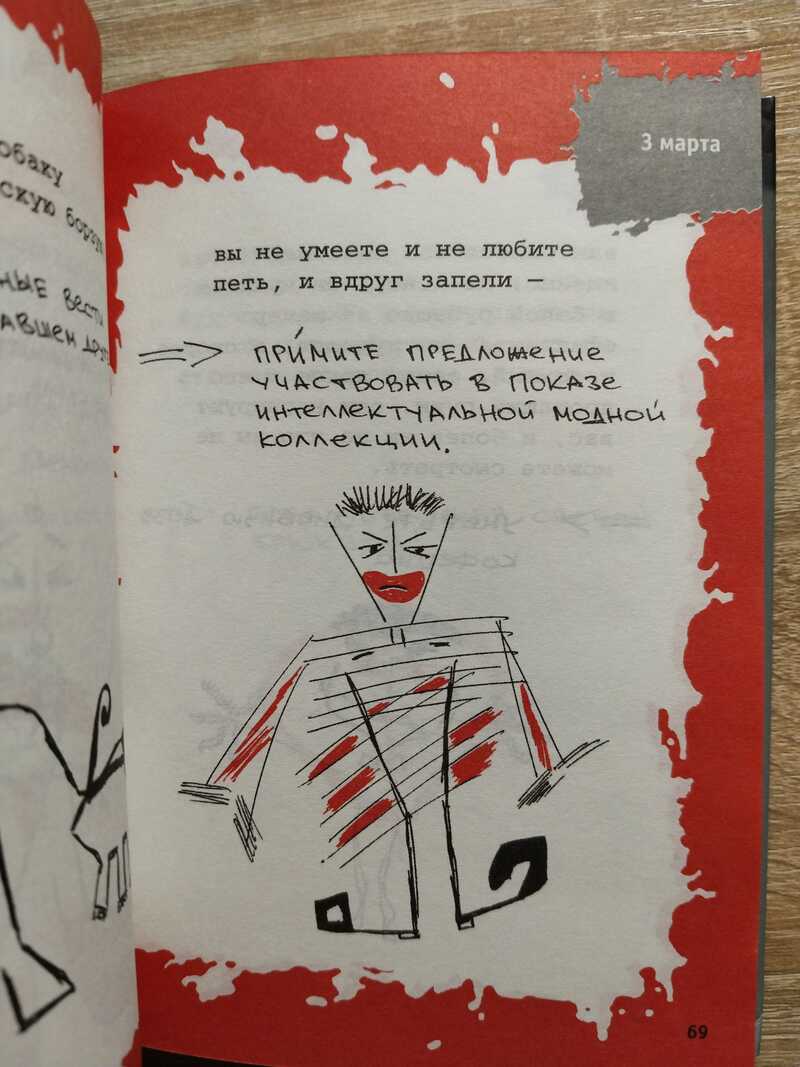 обаку
скую борзую
ные вести
авшем друге
3 марта
вы не умеете и не любите
петь, и вдруг запели —
ПРИ́МИТЕ ПРЕДЛОЖЕНИЕ
УЧАСТВОВАТЬ В ПОКАЗЕ
ИНТЕЛЛЕКТУАЛЬНОЙ МОДНОЙ
КОЛЛЕКЦИИ.
69